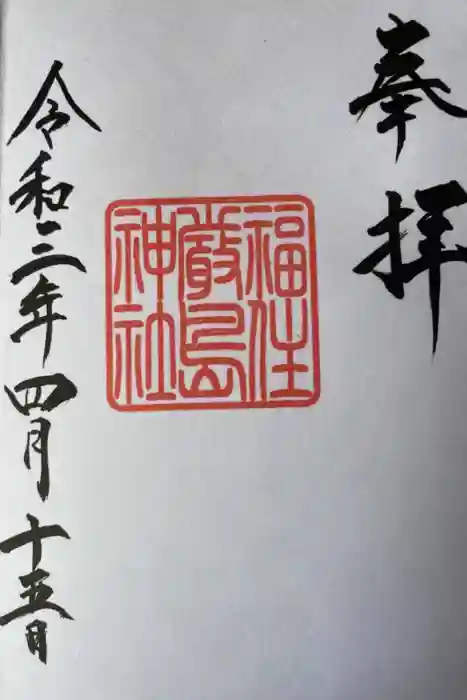 奉拝
福住
厳島
神社
令和三年四月十五日